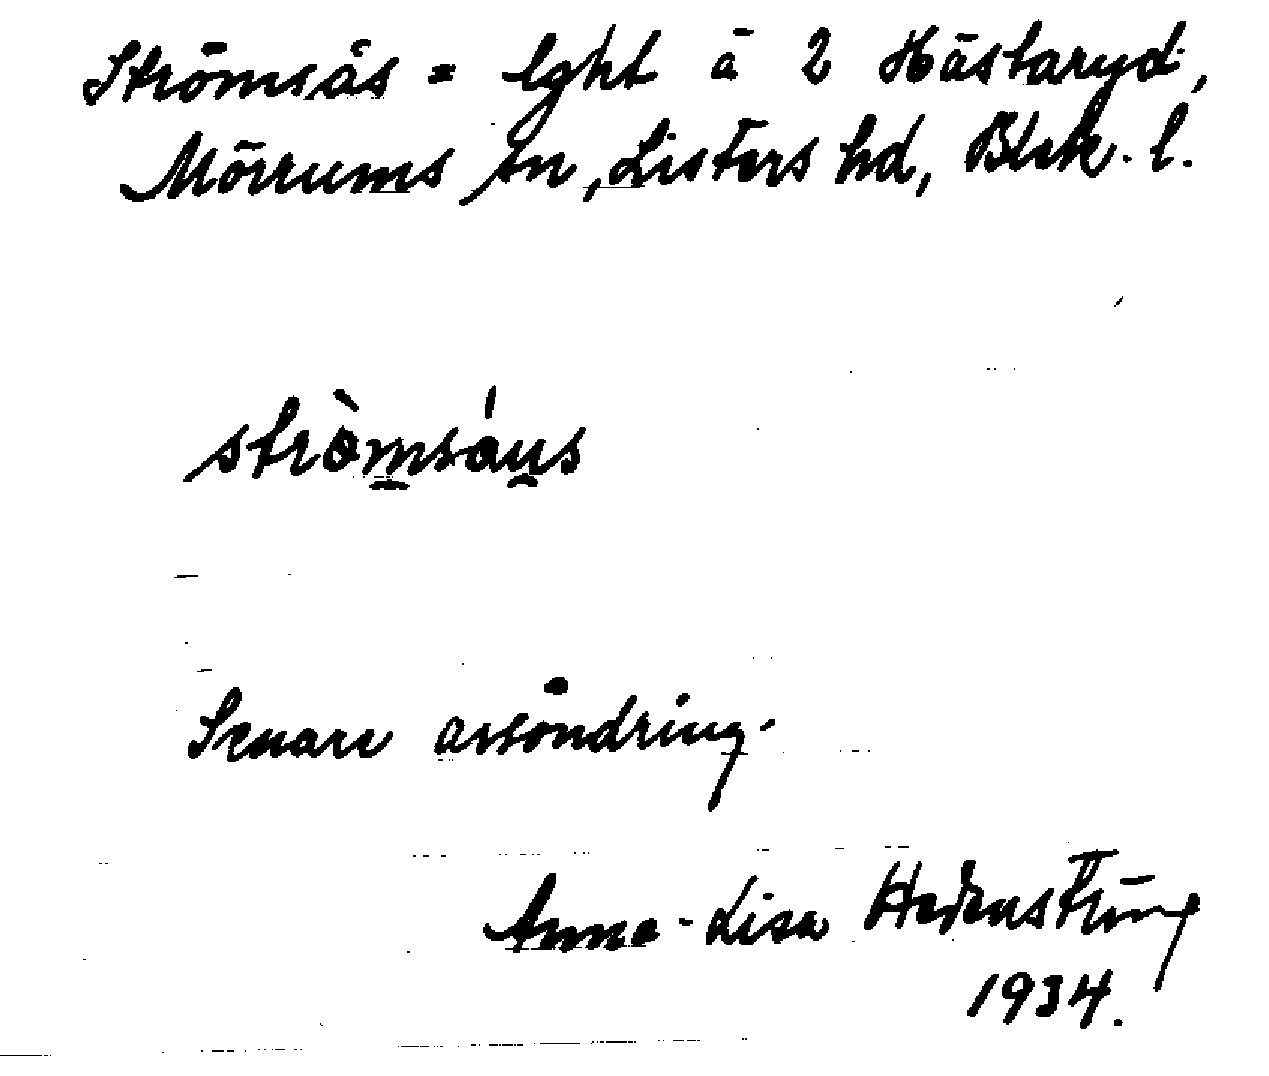 Strömsås = lght å 2 Hästaryd,
Mörrums sn, Listers hd, Blek. l.
strò̱msáu̯s
Senare avsöndring.
Anna-Lisa Hedenström
1934.